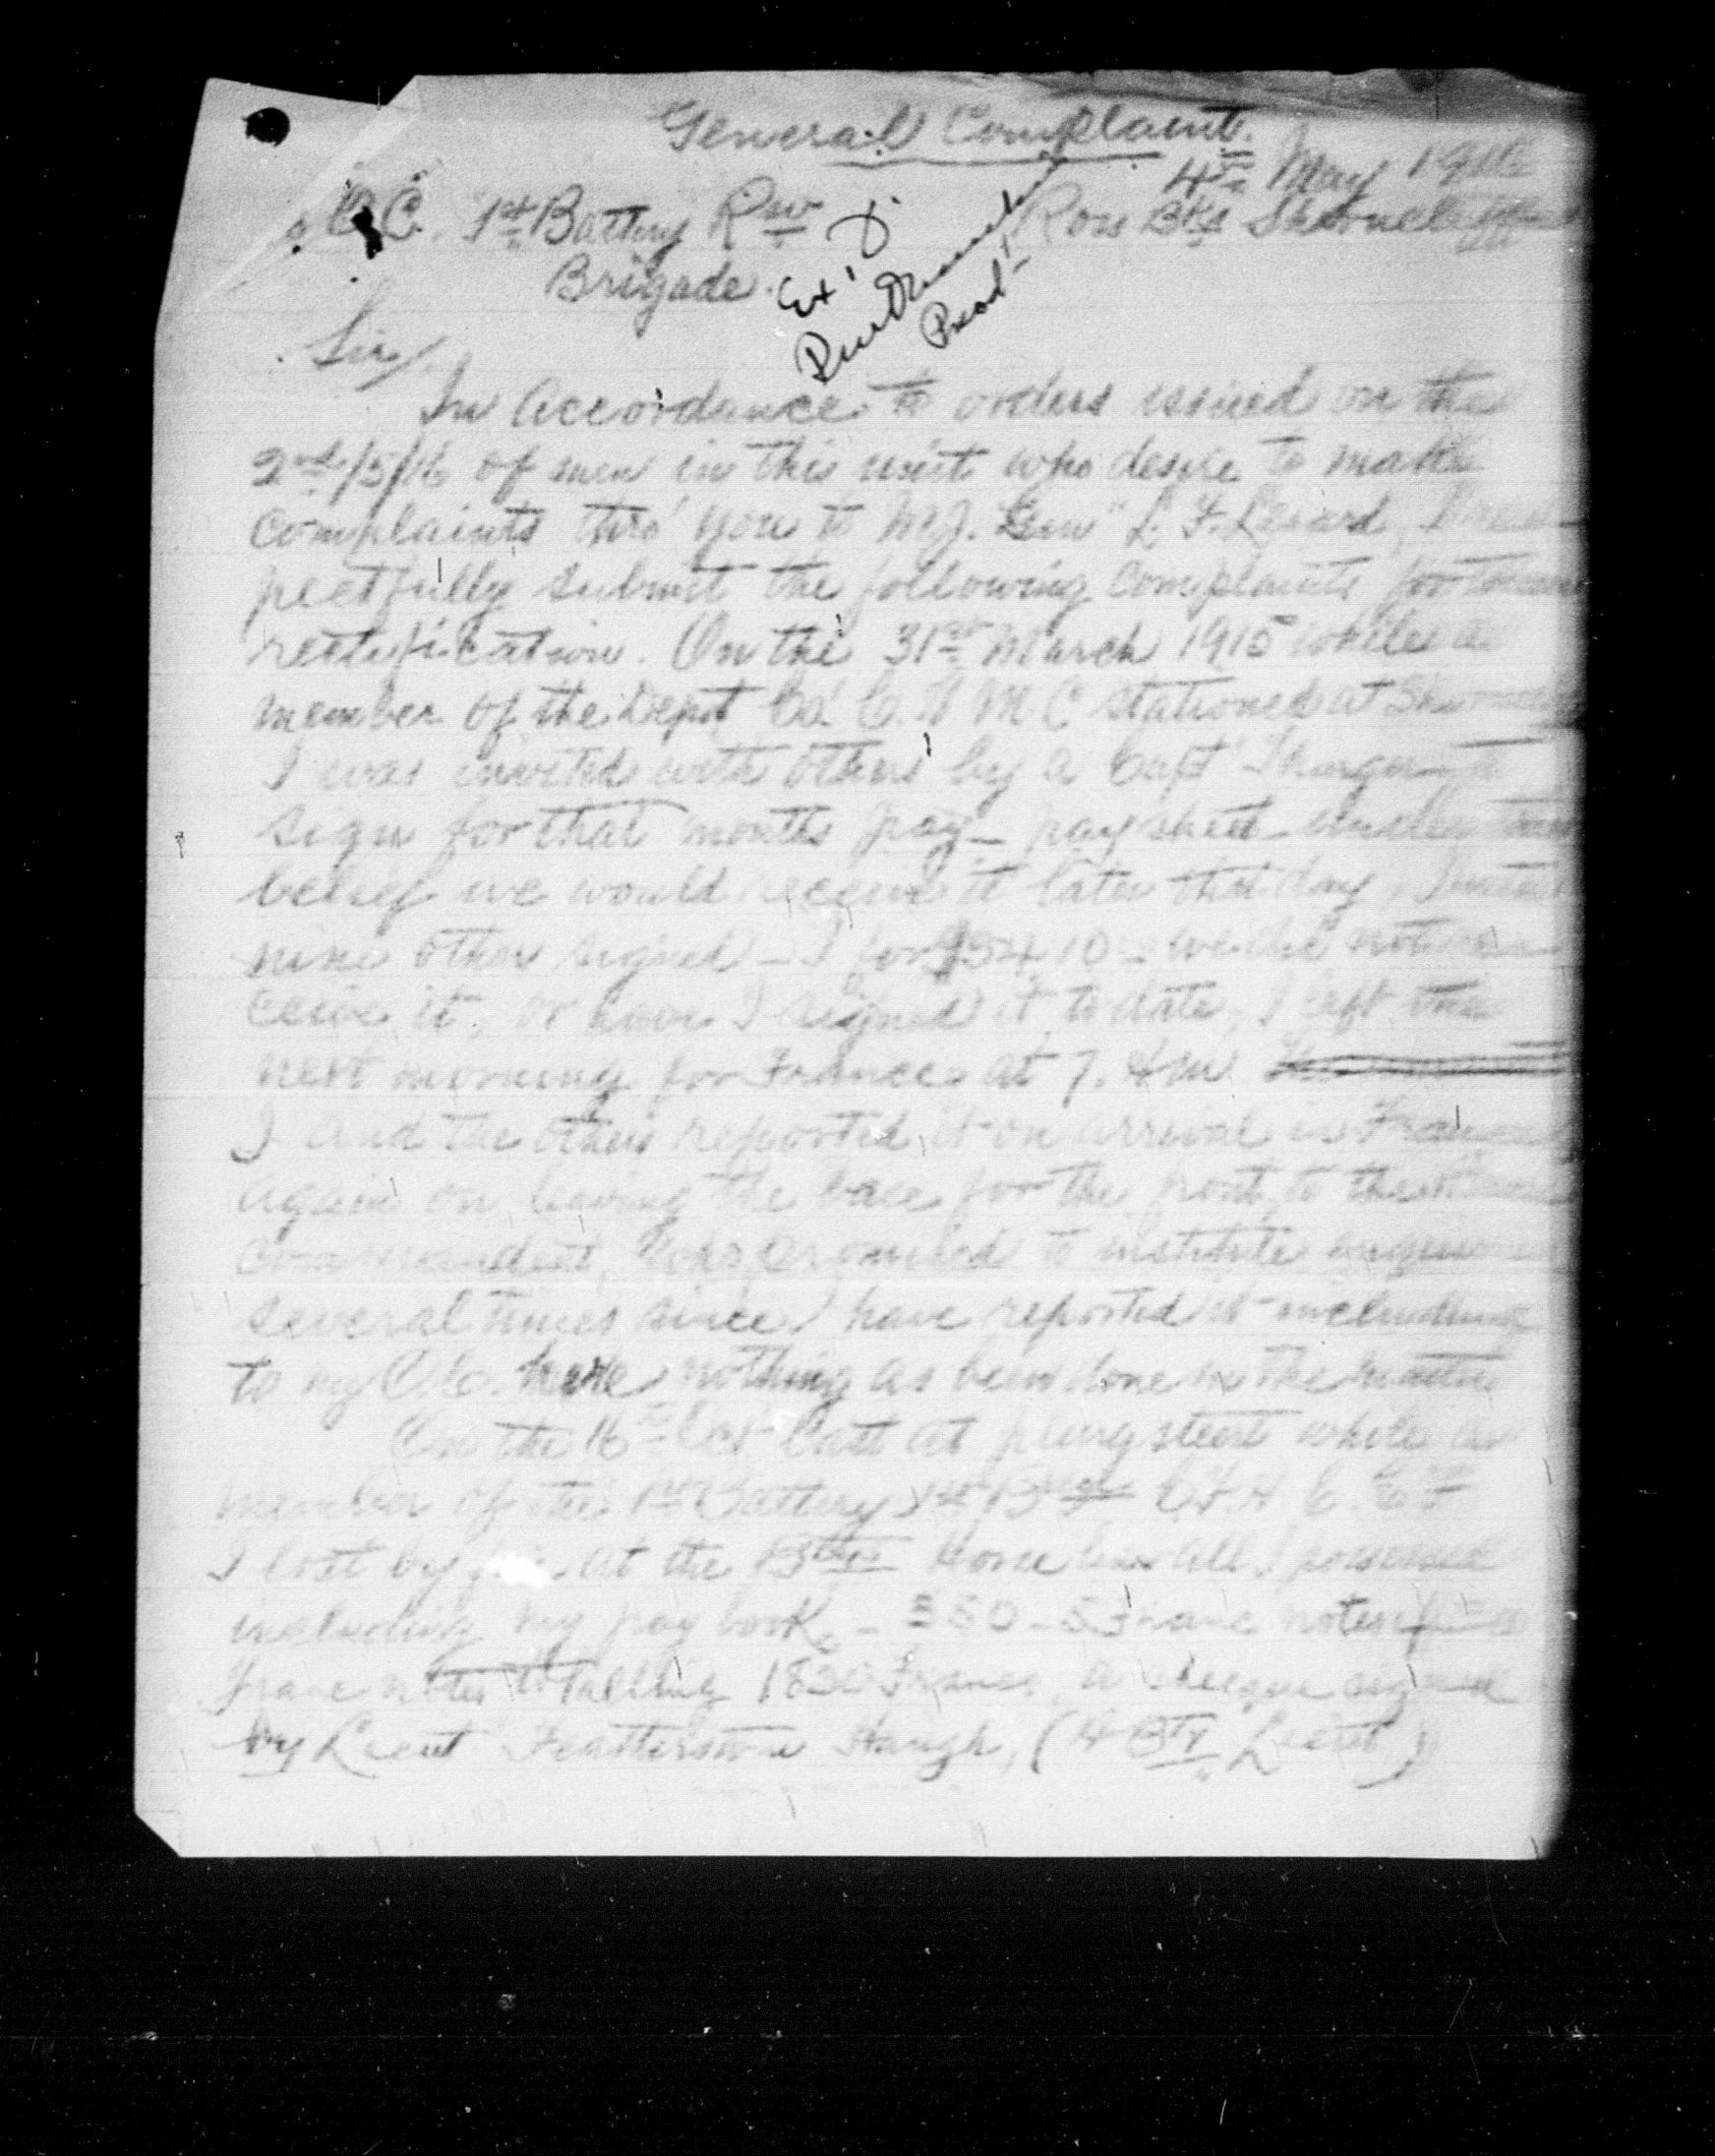 General Complaint.
4th May 1916
O.C. 1st Battery Rsv Ross Bks Shorncliffe
Brigade.
Ex. D.
Pres't
Sir/
In Accordance to orders issued on the
2nd/5/16 of men in this unit who desire to make
complaints thro' you to Mj. Gen" L. F.
pectfully submit the following complaints for
restification. On the 31st March 1915 while a
member of the Depot Co. C. A M C stationed at
I was invited with others by a Capt
sign for that months pay - pay sheet under
belief we would receive it later that day,
nine other signed - I for $54 10 - we did not re-
ceive it, or have I signed it to date, I left the
next morning for France at 7. Am
I and the others reported it on arrival in
again on leaving the base for the front, to the
commandant, who promised to institute
several times since I have reported it including
to my O.C. here nothing as been done in the matter
On the 16th Oct last at plung steert while a
member of the 1st Battery 1st Bde C.F.A C.E.F
I lost by at the Btty Horse lines all I possessed
including my pay book, - 350 - 5 Franc notes
Franc notes totalling 1830 Francs, a cheque signed
by Lieut Featherstone Haugh, (4 Bty Lieut)